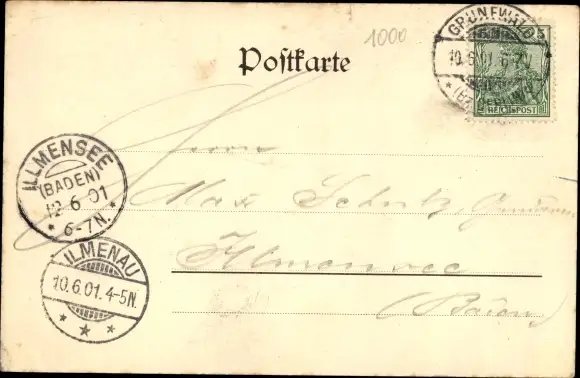 1000
Postkarte
GRUNEWALD
10.6.01. 6-7V.
REICHSPOST
ILLMENSEE
(BADEN)
12.6.01
* 6-7N. *
ILMENAU
10.6.01. 4-5N.
* * *
Herrn
Max Schutz,
Illmensee
(Baden)